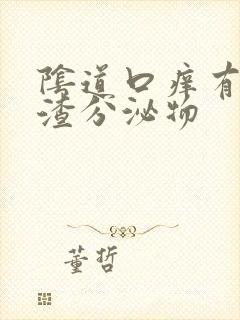 陰道口痒有
渣分泌物
董哲